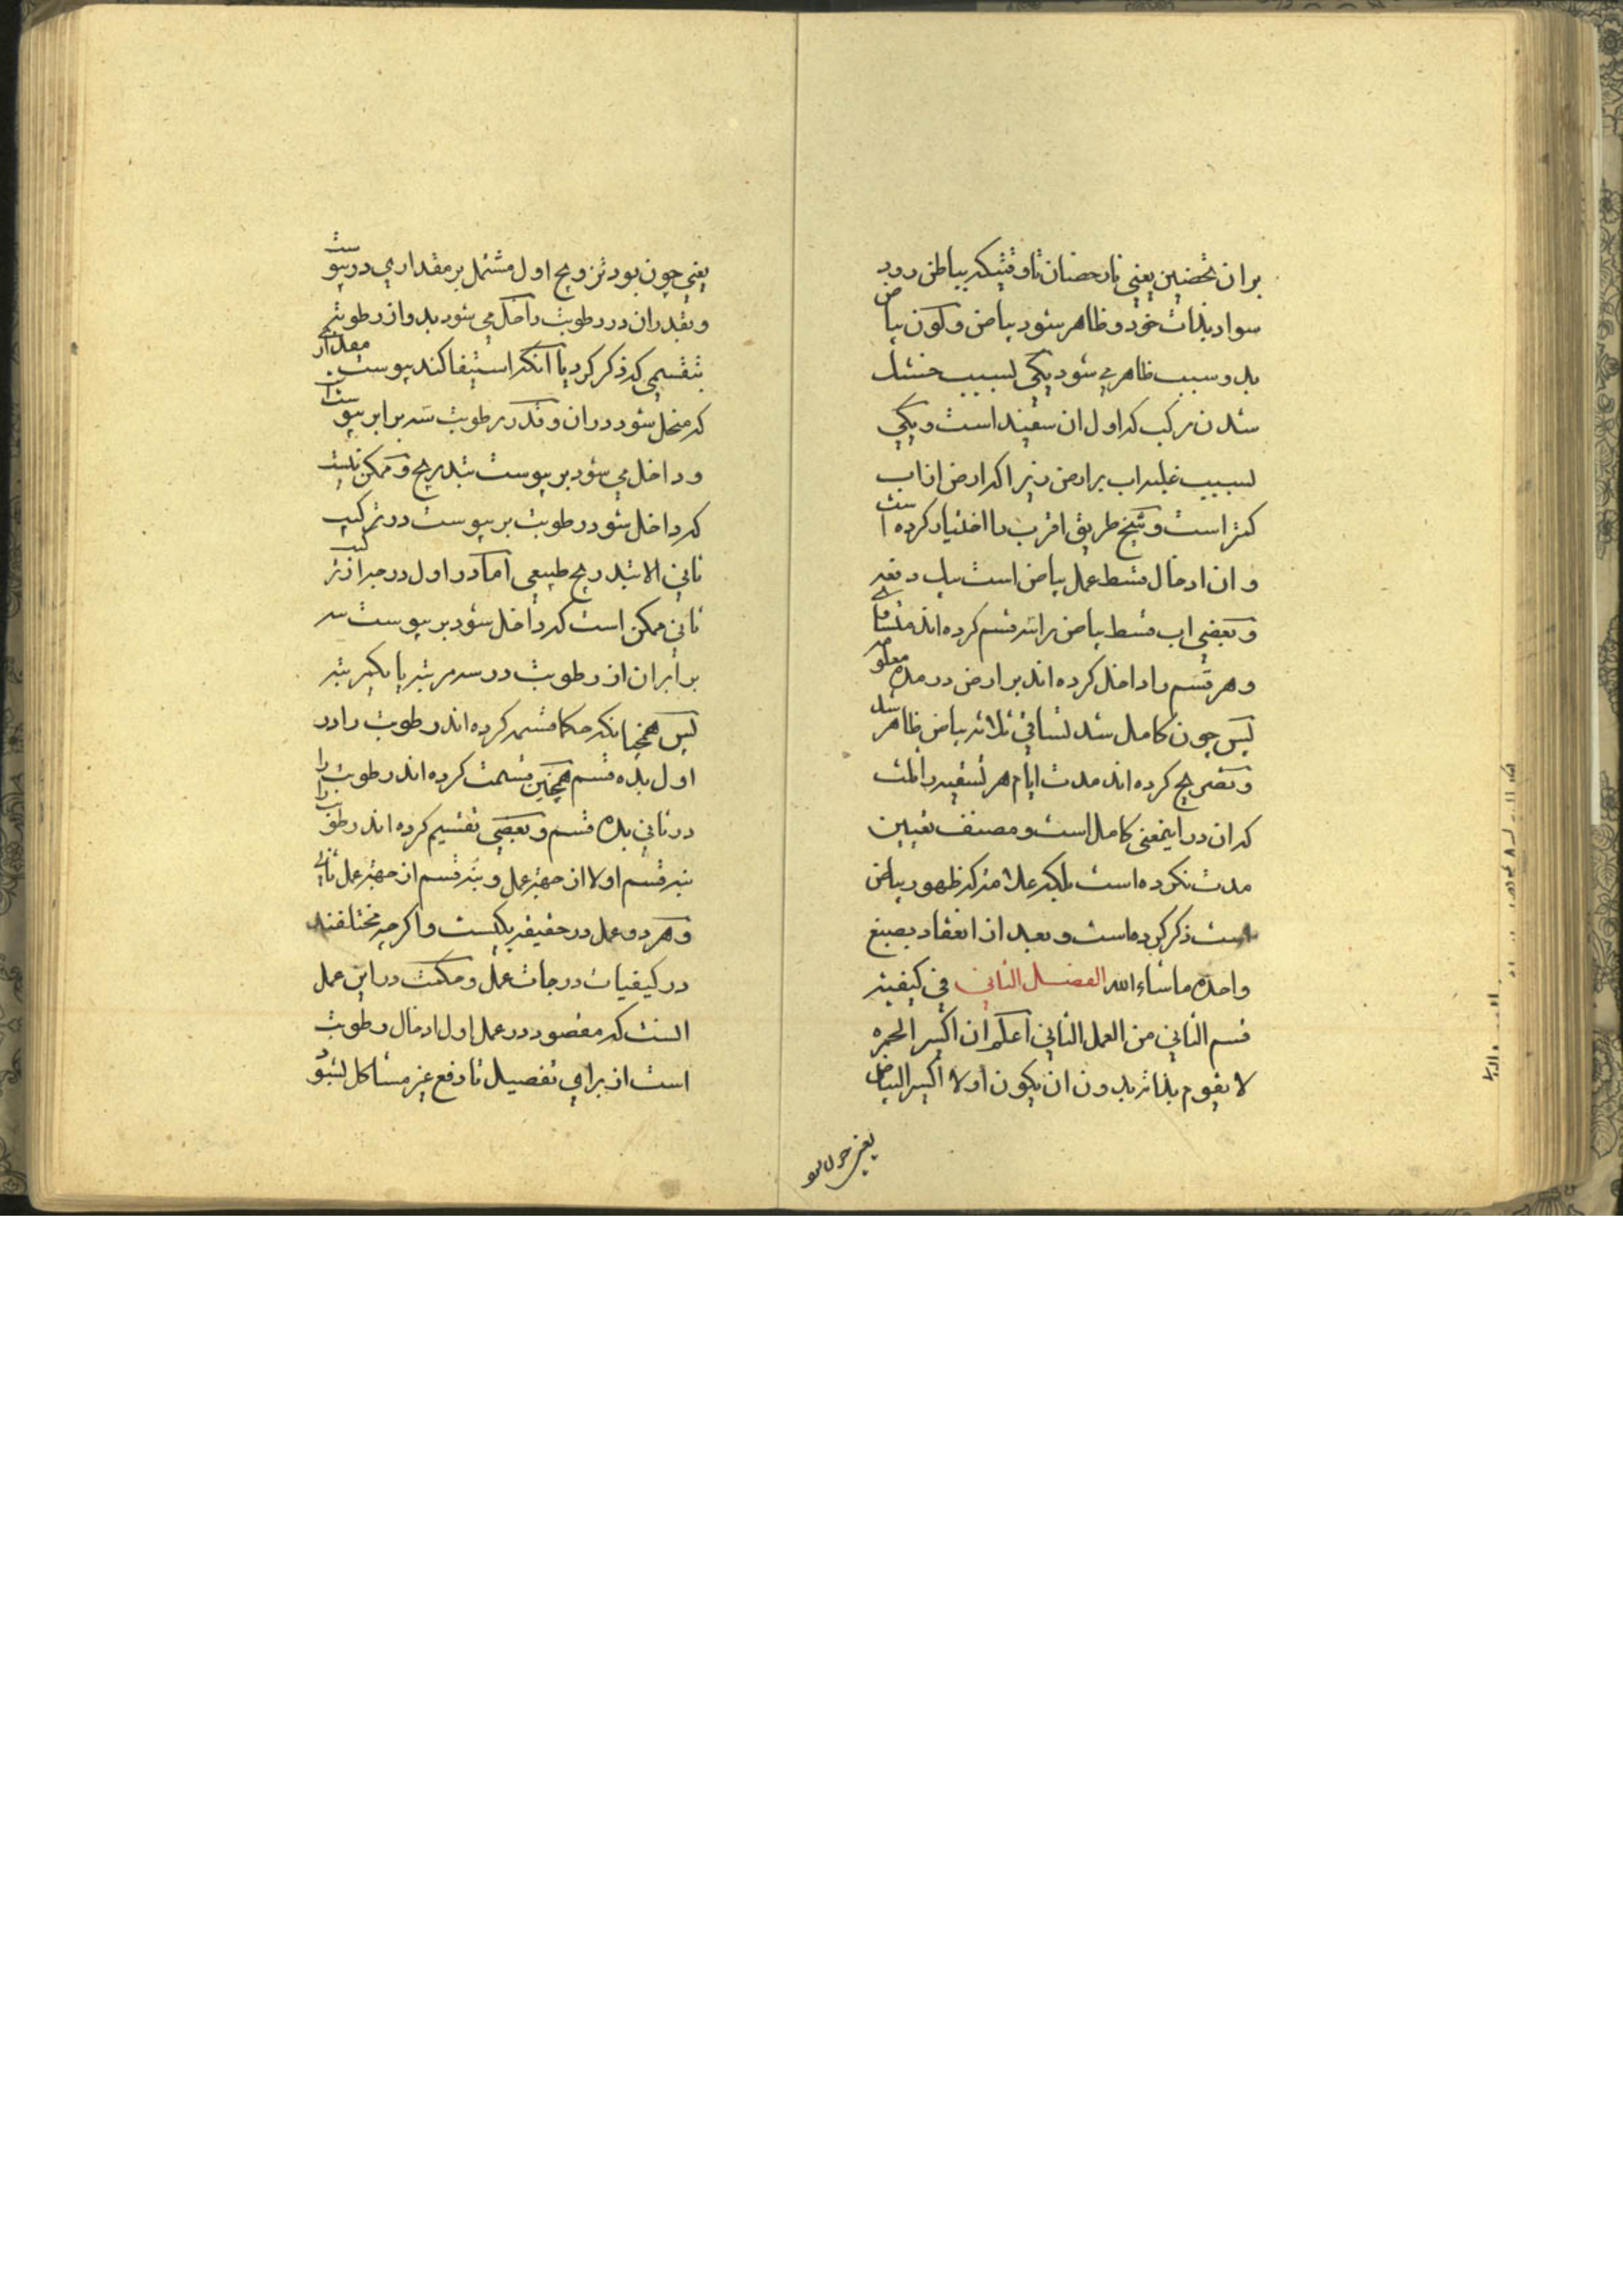 بران تحضین یعنی نار حضان تا وقتیکه بباطن رود
سواد بذات خود و ظاهر شود بیاض و کون بیاض
بدو سبب ظاهر می شود یکی بسبب خشک
شدن مرکب که اول ان سفیند است و یکی
بسبب غلبه اب بر ارض زیرا که ارض از اب
کمتر است و شیخ طریق اقرب را اختیار کرده است
و ان ادخال قسط عمل بیاض است بیک دفعه
و بعضی اب قسط بیاض را سه قسم کرده اند متساوی
و هر قسم را داخل کرده اند بر ارض در مده معلومه
پس چون کامل شد تساقی ثلاثه بیاض ظاهر شد
و تصریح کرده اند مدت ایام هر تسقیه را ثلث
که ان در اینمعنی کامل است و مصنف تعیین
مدت نکرده است بلکه علامتی که ظهور بیاض
است ذکر کرده است و بعد از انعقاد بصبغ
واحده ماشاء الله الفصل الثانی فی کیفیة
قسم الثانی من العمل الثانی اعلم ان اکسیر الحمره
لا یقوم بذاته بدون ان یکون اولا اکسیر البیاض
یعنی چون بود
یعنی چون بود تزویج اول مشتمل بر مقداری در یبوست
و بقدر ان در رطوبت داخل می شود بدو از رطوبت
بتقسیمی که ذکر کرد یا انکه استیفا کند یبوست مقدار
که منحل شود در ان و قدر رطوبت سه برابر یبوست است
و داخل می شود بر یبوست بتدریج و ممکن نیست
که داخل شود رطوبت بر یبوست در ترکیب
ثانی الا بتدریج طبیعی اما در اول درجه از ترکیب
ثانی ممکن است که داخل شود بر یبوست سه
برابر ان از رطوبت در سه مرتبه یا یکمرتبه
پس همچنانکه حکما قسمه کرده اند رطوبت را در
اول بده قسم همچنین قسمت کرده اند رطوبت را
در ثانی بده قسم و بعضی تقسیم کرده اند رطوبت را
بنه قسم اولا از جهة عمل و بنه قسم از جهة عمل ثانی
و هر دو عمل در حقیقه یکیست و اکرچه مختلفند
در کیفیات درجات عمل و حکمت در این عمل
انست که مقصود در عمل اول ادخال رطوبت
است از برای تفصیل تا دفع غیر مشاکل بشود